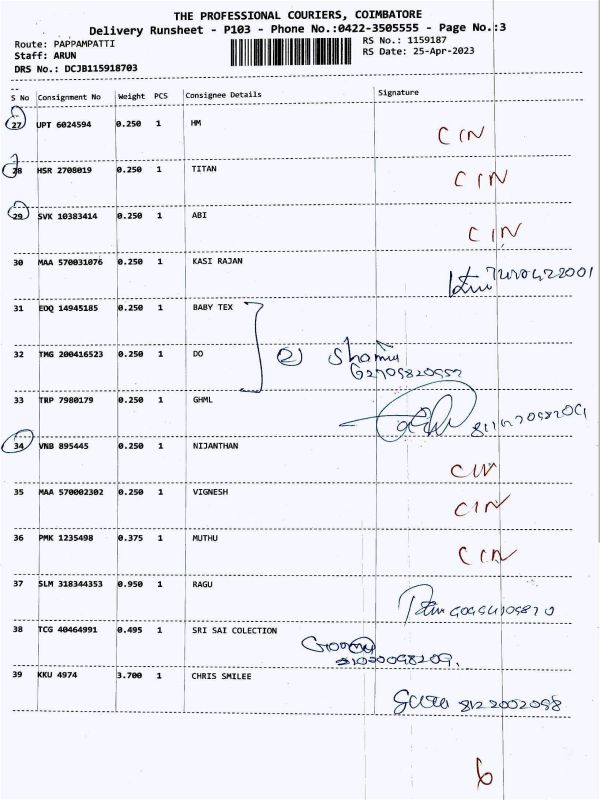 THE PROFESSIONAL COURIERS, COIMBATORE
Delivery Runsheet - P103 - Phone No.:0422-3505555 - Page No.:3
Route: PAPPAMPATTI RS No.: 1159187
Staff: ARUN RS Date: 25-Apr-2023
DRS No.: DCJB115918703
S No Consignment No Weight PCS Consignee Details Signature
27 UPT 6024594 0.250 1 HM CIN
28 HSR 2708019 0.250 1 TITAN CIN
29 SVK 10383414 0.250 1 ABI CIN
30 MAA 570031076 0.250 1 KASI RAJAN
31 EDQ 14945185 0.250 1 BABY TEX
32 TMG 200416523 0.250 1 DO
33 TRP 7980179 0.250 1 GHML
34 VNB 895445 0.250 1 NIJANTHAN CIN
35 MAA 570002302 0.250 1 VIGNESH CIN
36 PMK 1235498 0.375 1 MUTHU CIN
37 SLM 318344353 0.950 1 RAGU
38 TCG 40464991 0.495 1 SRI SAI COLECTION
39 KKU 4974 3.700 1 CHRIS SMILEE